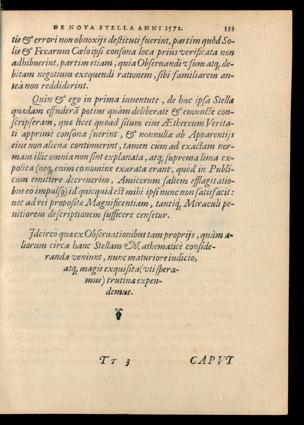 DE NOVA STELLA ANNI 1572. 333
tis & errori non obnoxijs destituti fuerint, partim quòd So-
lis & Fixarum Cœlo ipsi consona loca prius verificata non
adhibuerint, partim etiam, quia Observandi usum atq; de-
bitam negotium exequendi rationem, sibi familiarem an-
tea non reddiderint.
Quin & ego in prima iuventute, de hac ipsa Stella
quædam effuderã potius quàm deliberatè & emunctè con-
scripseram, quæ licet quod situm eius Æthereum Verita-
ti apprimè consona fuerint, & nonnulla ab Apparentijs
eius non aliena continuerint, tamen cum ad exactam nor-
mam illic omnia non sint explanata, atq; suprema lima ex-
polita (neq; enim eo nomine exarata erant, quod in Publi-
cum emittere decreverim, Amicorum saltem efflagitatio-
nibus eo impulso) id quicquid est mihi ipsi nunc non satisfacit:
nec ad rei proposita Magnificentiam, tantiq; Miraculi pe-
nitiorem descriptionem sufficere censetur.
Idcirco quæ ex Observationibus tam proprijs, quàm a-
liorum circa hanc Stellam Mathematicè conside-
randa veniunt, nunc maturiore iudicio,
atq; magis exquisita (uti spera-
mus) trutina expen-
demus.
Tt 3 CAPVT